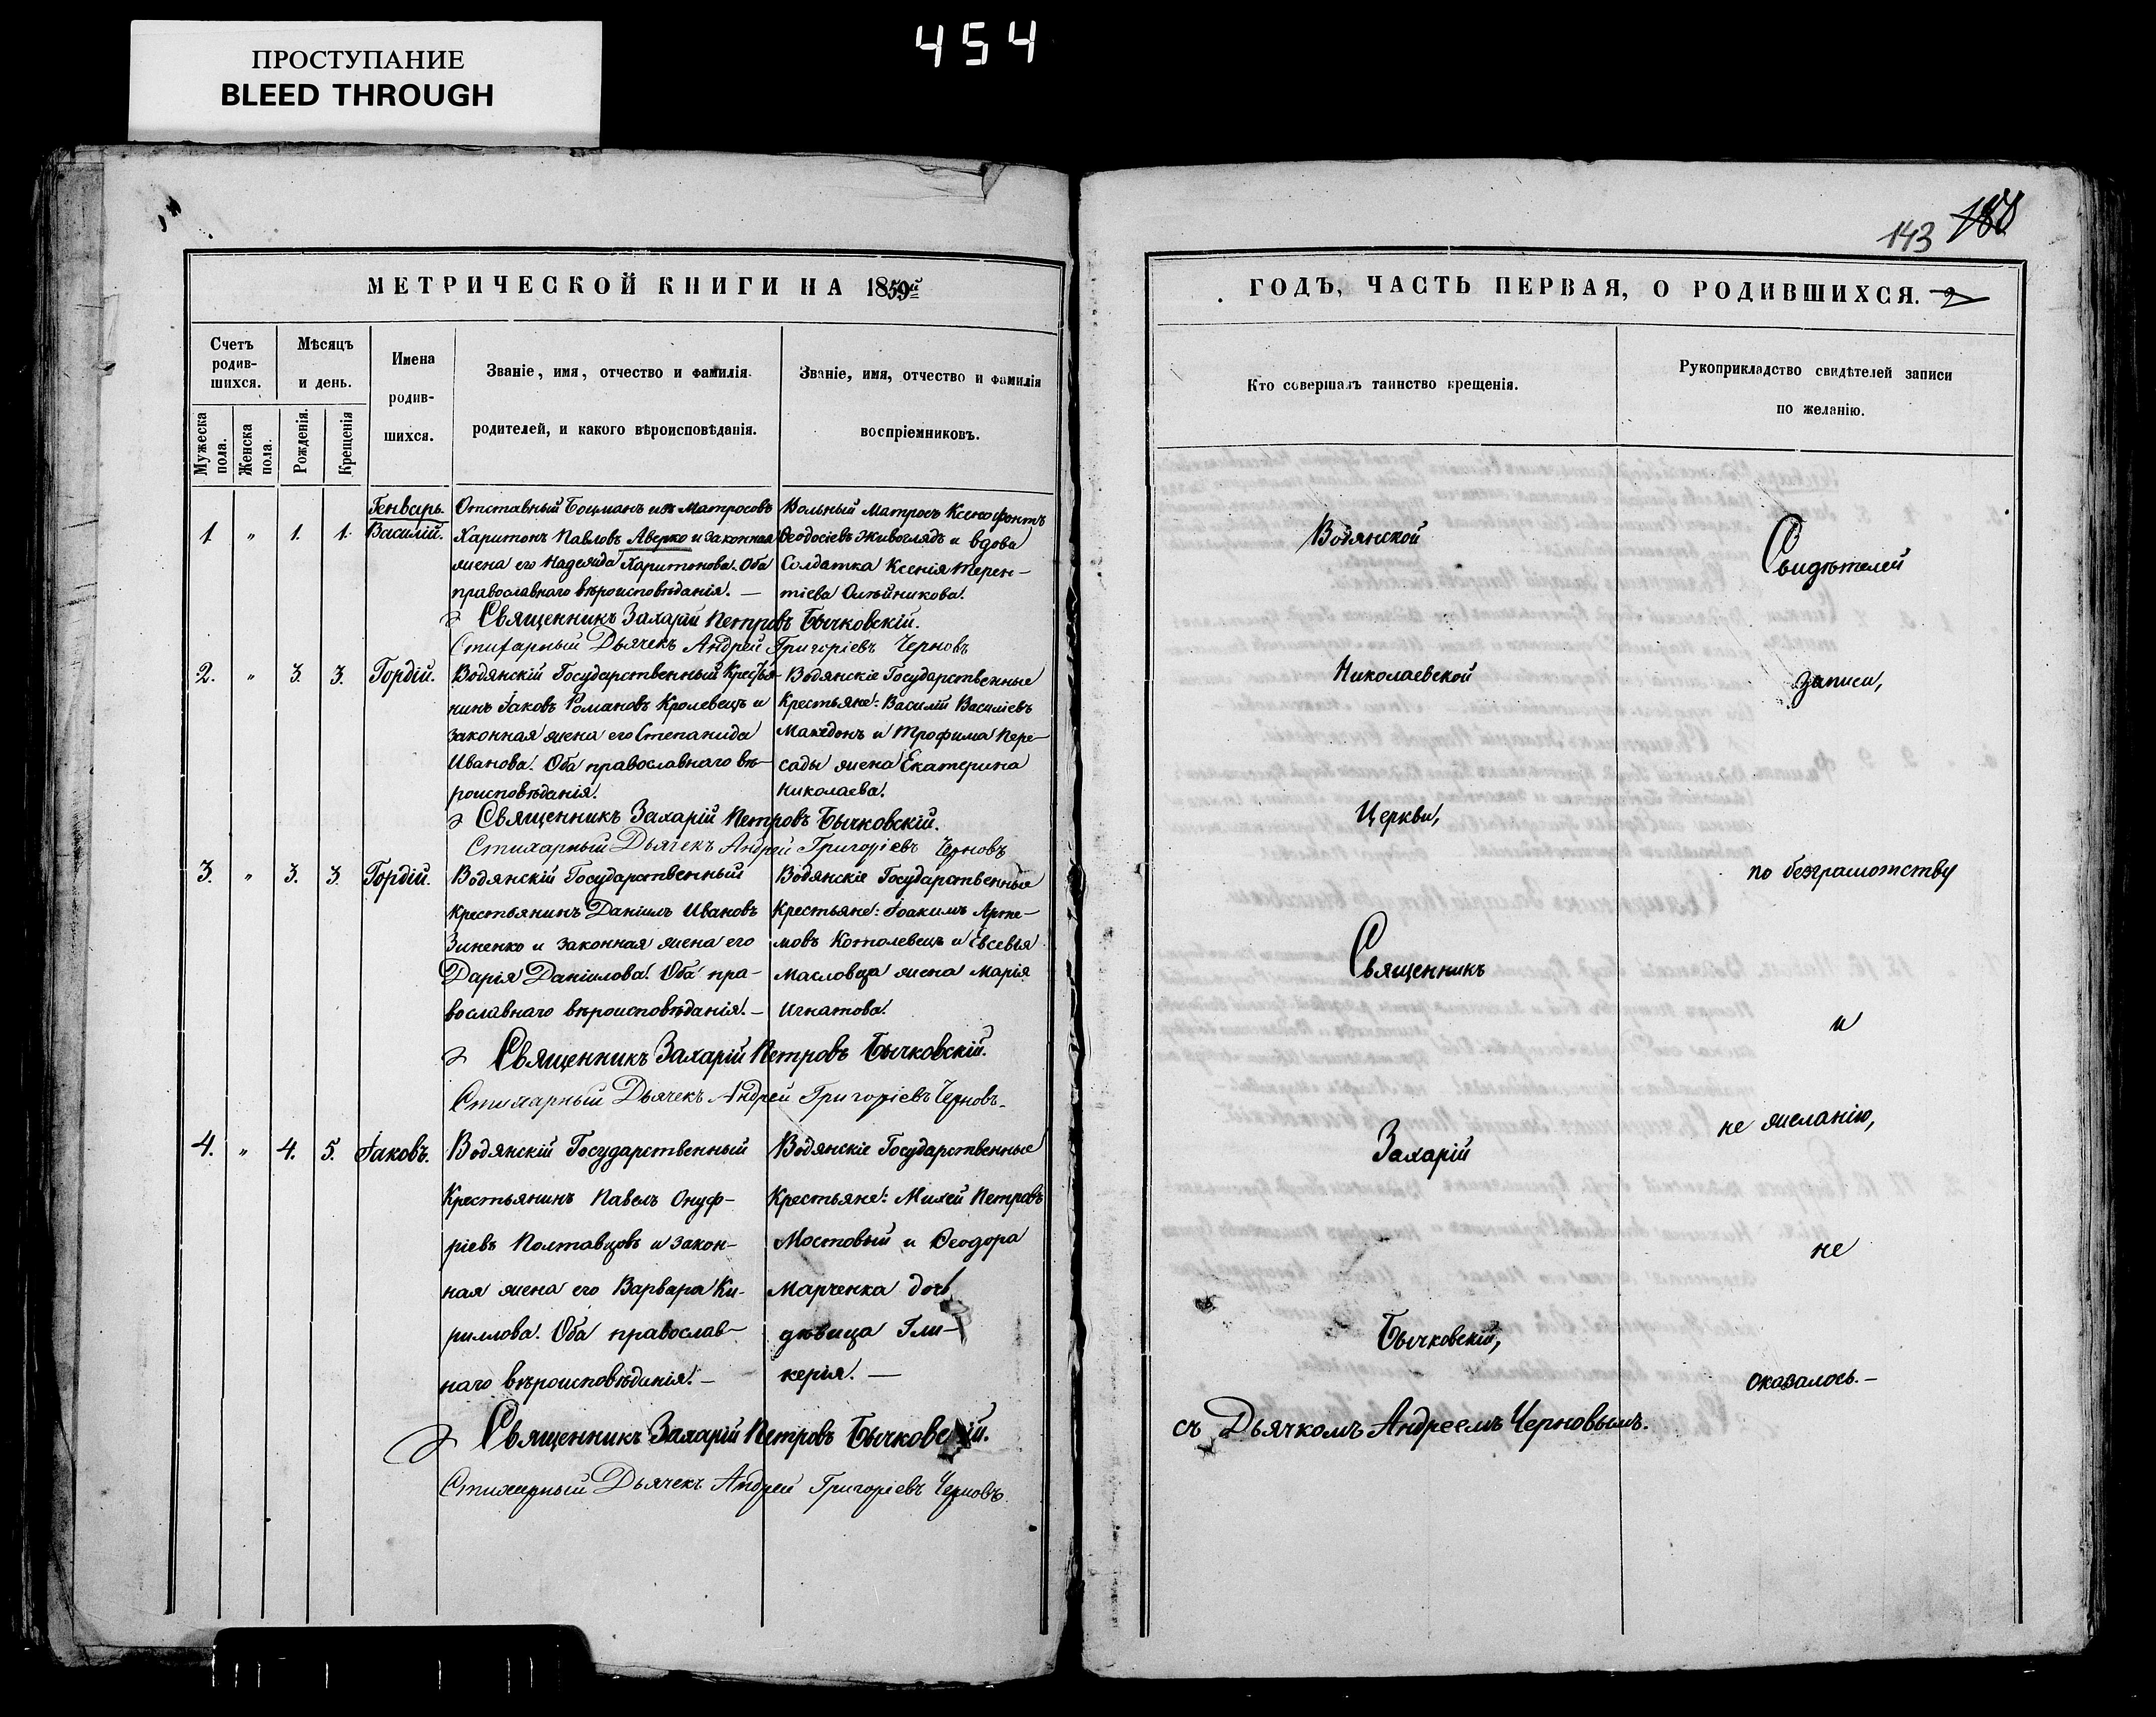 ПРОСТУПАНИЕ
BLEED THROUGH
454
143
МЕТРИЧЕСКОЙ КНИГИ НА 1859й
Счетъ родив-шихся.
Мѣсяцъ и день.
Имена родив-шихся.
Званіе, имя, отчество и фамилія
родителей, и какого вѣроисповѣданія.
Званіе, имя, отчество и фамилія
воспріемниковъ.
Мужеска пола.
Женска пола.
Рожденія.
Крещенія
Генварь.
1 " 1. 1. Василій.
Отставный Боцманъ изъ Матросовъ
Харитонъ Павловъ Аверко и законная
жена его Надежда Харитонова. Оба
православнаго вѣроисповѣданія. —
Вольный Матросъ Ксенофонтъ
Ѳеодосіевъ Живоглядъ и вдова
Солдатка Ксенія Терен-
тіева Олѣйникова.
Священникъ Захарій Петровъ Бычковскій.
Стихарный Дьячекъ Андрей Григоріевъ Черновъ
2. " 3. 3. Гордій.
Водянскій Государственный Крестья-
нинъ Іаковъ Романовъ Кролевецъ и
законная жена его Степанида
Иванова. Оба православнаго вѣ-
роисповѣданія.
Водянскіе Государственные
Крестьяне: Василій Василіевъ
Македонъ и Трофима Пере-
сады жена Екатерина
Николаева.
Священникъ Захарій Петровъ Бычковскій.
Стихарный Дьячекъ Андрей Григоріевъ Черновъ
3. " 3. 3. Гордій.
Водянскій Государственный
Крестьянинъ Даніилъ Ивановъ
Зиненко и законная жена его
Дарія Даніилова. Оба пра-
вославнаго вѣроисповѣданія. —
Водянскіе Государственные
Крестьяне: Іоакимъ Арте-
мовъ Котолевецъ и Евсевія
Масловца жена Марія
Игнатова.
Священникъ Захарій Петровъ Бычковскій.
Стихарный Дьячекъ Андрей Григоріевъ Черновъ.
4. " 4. 5. Іаковъ.
Водянскій Государственный
Крестьянинъ Павелъ Онуф-
ріевъ Полтавцовъ и закон-
ная жена его Варвара Ки-
риллова. Оба православ-
наго вѣроисповѣданія. —
Водянскіе Государственные
Крестьяне: Михей Петровъ
Мостовый и Ѳеодора
Марченка дочь
дѣвица Гли-
керія. —
Священникъ Захарій Петровъ Бычковскій.
Стихарный Дьячекъ Андрей Григоріевъ Черновъ.
ГОДЪ, ЧАСТЬ ПЕРВАЯ, О РОДИВШИХСЯ. 2
Кто совершалъ таинство крещенія.
Рукоприкладство свидѣтелей записи
по желанію.
Водянской
Николаевской
Церкви,
Священникъ
Захарій
Бычковскій,
съ Дьячкомъ Андреемъ Черновымъ.
Свидѣтелей
записи,
по безграмотству
и
не желанію,
не
оказалось. —